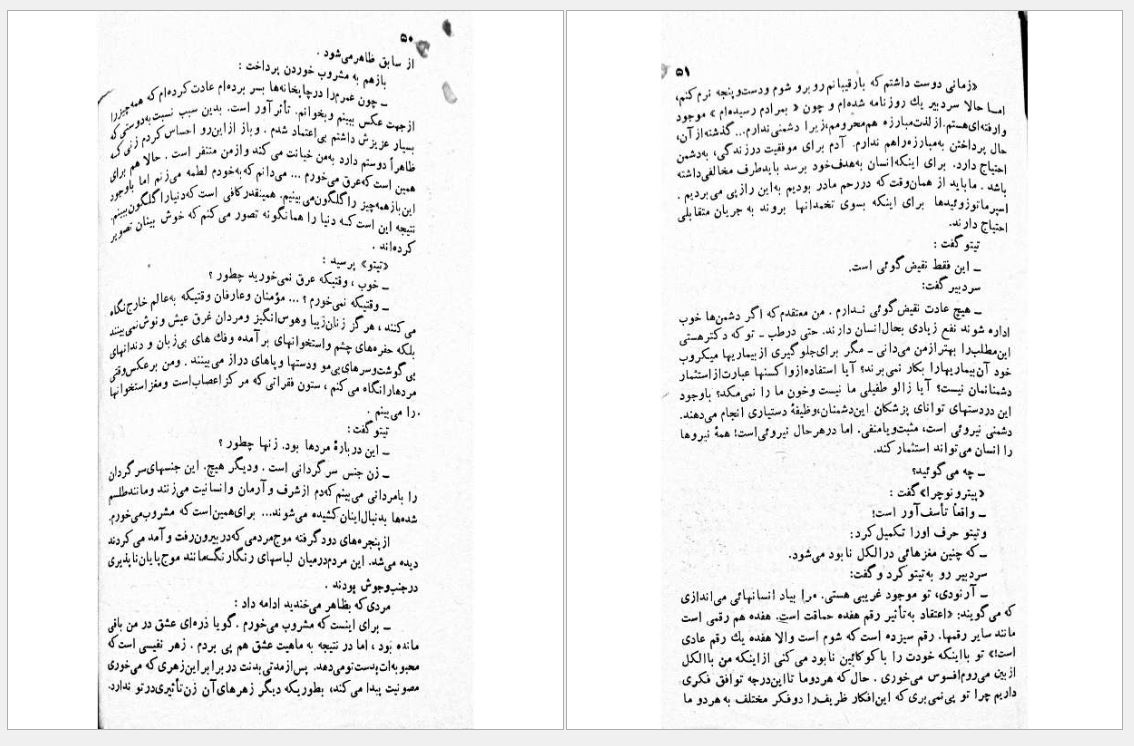 ۵۰
از سابق ظاهر می‌شود .
بازهم به مشروب خوردن پرداخت :
ـ چون عمرم را در چاپخانه‌ها بسر برده‌ام عادت کرده‌ام که همه‌چیز را
از جهت عکس ببینم و بخوانم. تأثر آور است. بدین سبب نسبت به دوستی که
بسیار عزیزش داشتم بی‌اعتماد شدم . و باز از این رو احساس کردم زنی که
ظاهراً دوستم دارد به‌من خیانت می‌کند و از من متنفر است . حالا هم برای
همین است که عرق می‌خورم ... می‌دانم که به‌خودم لطمه می‌زنم اما باوجود
این باز همه‌چیز را گلگون می‌بینم. همینقدر کافی است که دنیا را گلگون ببینم.
نتیجه این است کــه دنیا را همانگونه تصور می‌کنم که خوش بینان تصویر
کرده‌اند .
«تیتو» پرسید :
ـ خوب ، وقتیکه عرق نمی‌خورید چطور ؟
ـ وقتیکه نمی‌خورم ؟ ... مؤمنان وعارفان وقتیکه به‌عالم خارج نگاه
می‌کنند ، هرگز زنان زیبا وهوس‌انگیز ومردان غرق عیش ونوش نمی‌بینند
بلکه حفره‌های چشم واستخوانهای برآمده وفك های بی‌زبان و دندانهای
بی‌گوشت وسرهای بی‌مو ودستها وپاهای دراز می‌بینند . ومن برعکس وقتی
مردها رانگاه می‌کنم ، ستون فقراتی که مرکز اعصاب است ومغز استخوانها
را می‌بینم .
تیتو گفت :
ـ این دربارهٔ مردها بود. زنها چطور ؟
ـ زن جنس سرگردانی است . ودیگر هیچ. این جنسهای سرگردان
را بامردانی می‌بینم که‌دم از شرف و آرمان وانسانیت می‌زنند ومانند طلسم
شده‌ها بدنبال اینان کشیده می‌شوند... برای همین است که مشروب می‌خورم.
از پنجره‌های دود گرفته موج مردمی که در بیرون رفت و آمد می‌کردند
دیده می‌شد. این مردم درمیان لباسهای رنگارنگ مانند موج پایان ناپذیری
درجنب‌وجوش بودند .
مردی که بظاهر می‌خندید ادامه داد :
ـ برای اینست که مشروب می‌خورم . گویا ذره‌ای عشق در من باقی
مانده بود ، اما در نتیجه به ماهیت عشق هم پی بردم . زهر نفیسی است که
محبوبه‌ات بدست تو می‌دهد. پس از مدتی بدنت در برابر این زهری که می‌خوری
مصونیت پیدا می‌کند، بطوریکه دیگر زهرهای آن زن تأثیری در تو ندارد.
۵۱
«زمانی دوست داشتم که بارقیبانم روبرو شوم ودست‌وپنجه نرم کنم،
امــا حالا سردبیر یك روزنامه شده‌ام و چون « بمرادم رسیده‌ام » موجود
وارفته‌ای هستم. از لذت مبارزه هم محرومم، زیرا دشمنی ندارم... گذشته از آن،
حال پرداختن به‌مبارزه‌راهم ندارم. آدم برای موفقیت درزندگی، به‌دشمن
احتیاج دارد. برای اینکه انسان به‌هدف خود برسد باید طرف مخالفی داشته
باشد . ما باید از همان وقت که دررحم مادر بودیم به این راز پی می‌بردیم .
اسپرماتوزوئیدها برای اینکه بسوی تخمدانها بروند به جریان متقابلی
احتیاج دارند.
تیتو گفت :
ـ این فقط نقیض گوئی است.
سردبیر گفت:
ـ هیچ عادت نقیض‌گوئی نــدارم . من معتقدم که اگر دشمن‌ها خوب
اداره شوند نفع زیادی بحال انسان دارند. حتی درطب ـ تو که دکترهستی
این‌مطلب‌را بهتر از من می‌دانی ـ مگر برای جلوگیری از بیماریها میکروب
خود آن بیماریها را بکار نمی‌برند؟ آیا استفاده از واکسنها عبارت از استثمار
دشمنانمان نیست؟ آیا زالو طفیلی ما نیست وخون ما را نمی‌مکد؟ باوجود
این دردستهای توانای پزشکان این‌دشمنان، وظیفهٔ دستیاری انجام می‌دهند.
دشمنی نیروئی است، مثبت‌ویامنفی. اما درهرحال نیروئی است! همهٔ نیروها
را انسان می‌تواند استثمار کند.
ـ چه می‌گوئید؟
«پیترو نوچرا» گفت :
ـ واقعاً تأسف‌آور است!
وتیتو حرف اورا تکمیل کرد:
ـ که چنین مغزهائی درالکل نابود می‌شود.
سردبیر رو به‌تیتو کرد و گفت:
ـ آرنودی، تو موجود غریبی هستی. مرا بیاد انسانهائی می‌اندازی
که می‌گویند: «اعتقاد به‌تأثیر رقم هفده حماقت است. هفده هم رقمی است
مانند سایر رقمها. رقم سیزده است که شوم است والا هفده یك رقم عادی
است!» تو بااینکه خودت را با کوکائین نابود می‌کنی از اینکه من باالکل
از بین می‌روم افسوس می‌خوری . حال که هردوما تا این‌درجه توافق فکری
داریم چرا تو پی نمی‌بری که این‌افکار ظریف‌را دوفکر مختلف به هردو ما